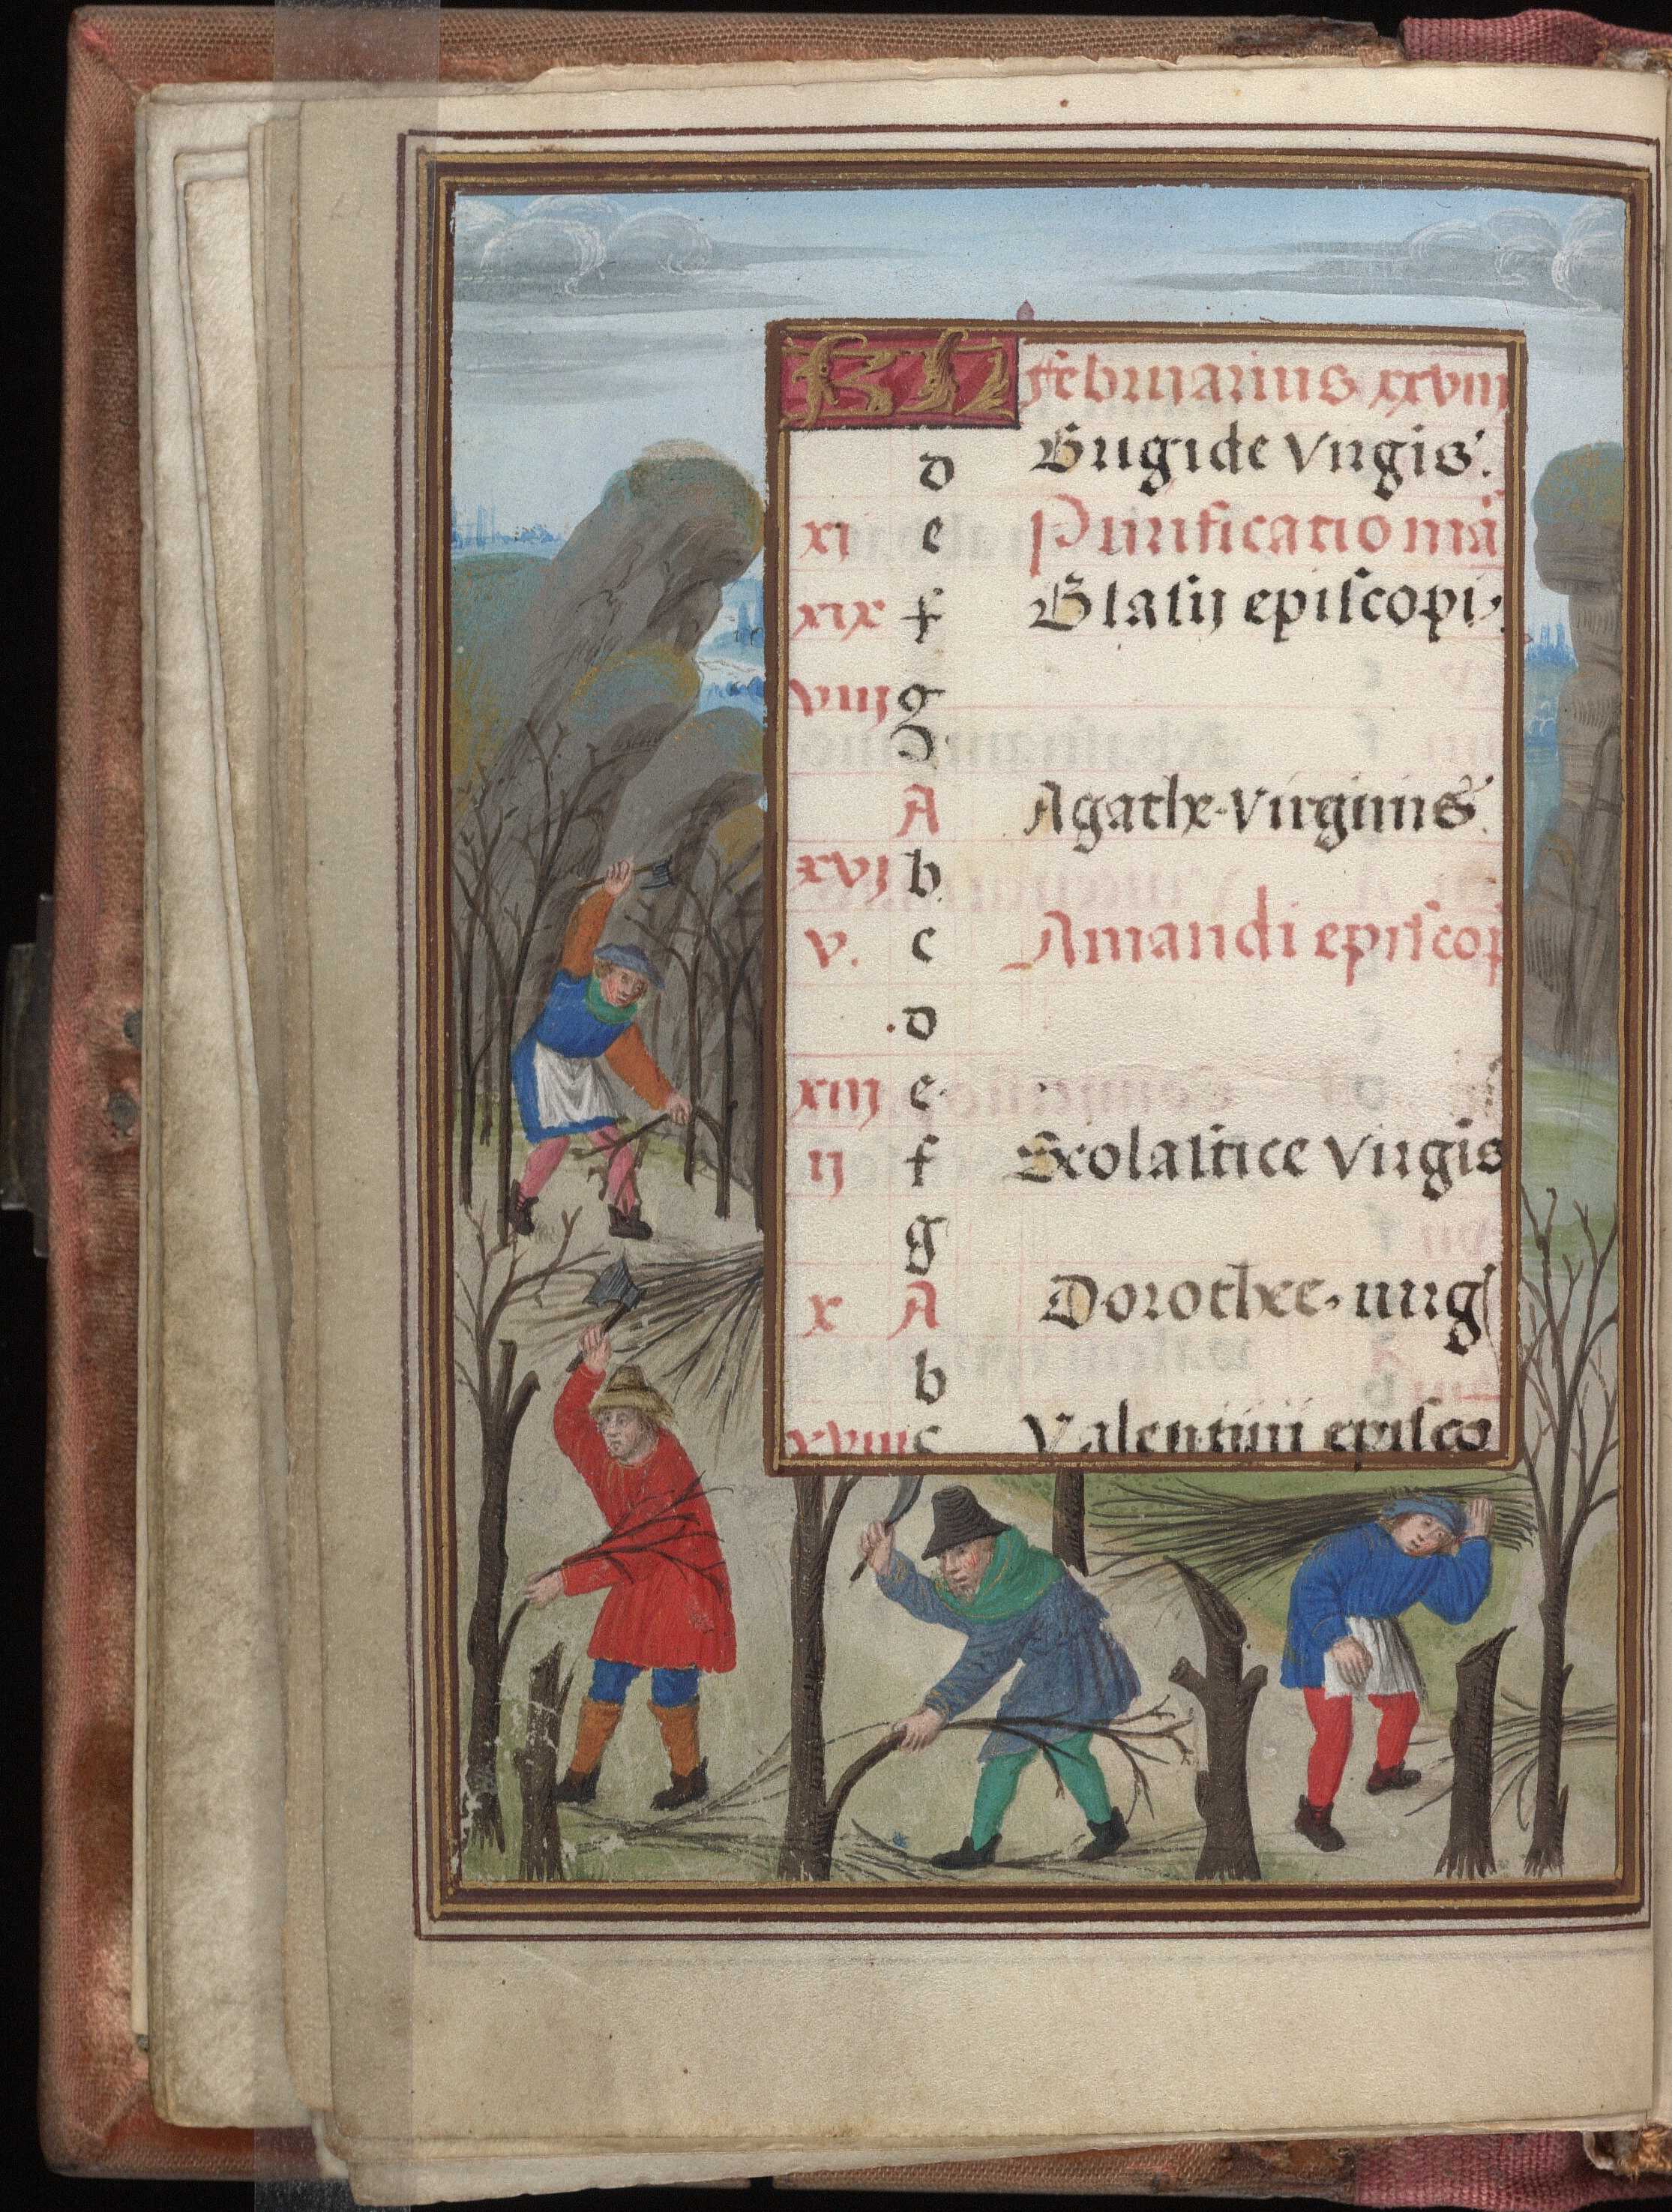 KL februarius xxviii
d Brigide virgis.
xi e Purificatio ma
xix f Blasij episcopi.
viij g
A Agathe virginis.
xvj b
v. c Amandi episcop
d
xiij e
ij f Scolastice virgis
g
x A Dorothee virg
b
xviij c Valentini episco